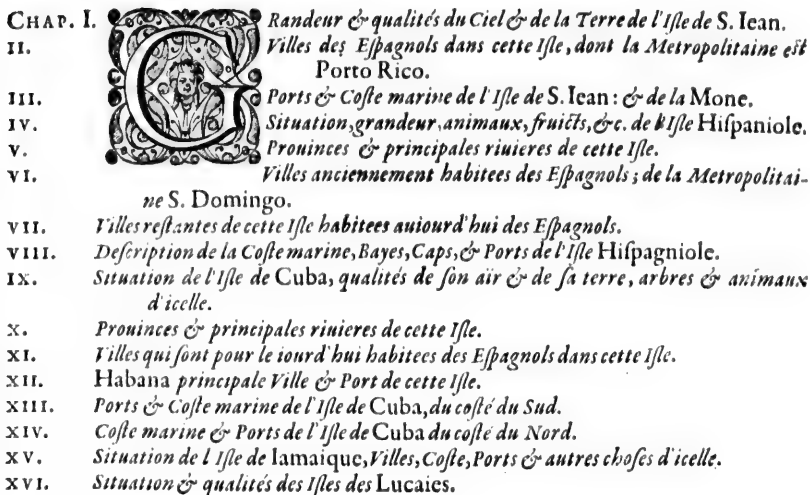 CHAP. I. GRandeur & qualités du Ciel & de la Terre de l'Iſle de S. Iean.
II. Villes des Eſpagnols dans cette Iſle, dont la Metropolitaine eſt
Porto Rico.
III. Ports & Coſte marine de l'Iſle de S. Iean : & de la Mone.
IV. Situation, grandeur, animaux, fruicts, &c. de l'Iſle Hiſpaniole.
V. Prouinces & principales riuieres de cette Iſle.
VI. Villes anciennement habitees des Eſpagnols ; de la Metropolitai-
ne S. Domingo.
VII. Villes reſtantes de cette Iſle habitees auiourd'hui des Eſpagnols.
VIII. Deſcription de la Coſte marine, Bayes, Caps, & Ports de l'Iſle Hiſpagniole.
IX. Situation de l'Iſle de Cuba, qualités de ſon air & de ſa terre, arbres & animaux
d'icelle.
X. Prouinces & principales riuieres de cette Iſle.
XI. Villes qui ſont pour le iourd'hui habitees des Eſpagnols dans cette Iſle.
XII. Habana principale Ville & Port de cette Iſle.
XIII. Ports & Coſte marine de l'Iſle de Cuba, du coſté du Sud.
XIV. Coſte marine & Ports de l'Iſle de Cuba du coſté du Nord.
XV. Situation de l Iſle de Iamaique, Villes, Coſte, Ports & autres choſes d'icelle.
XVI. Situation & qualités des Iſles des Lucaies.